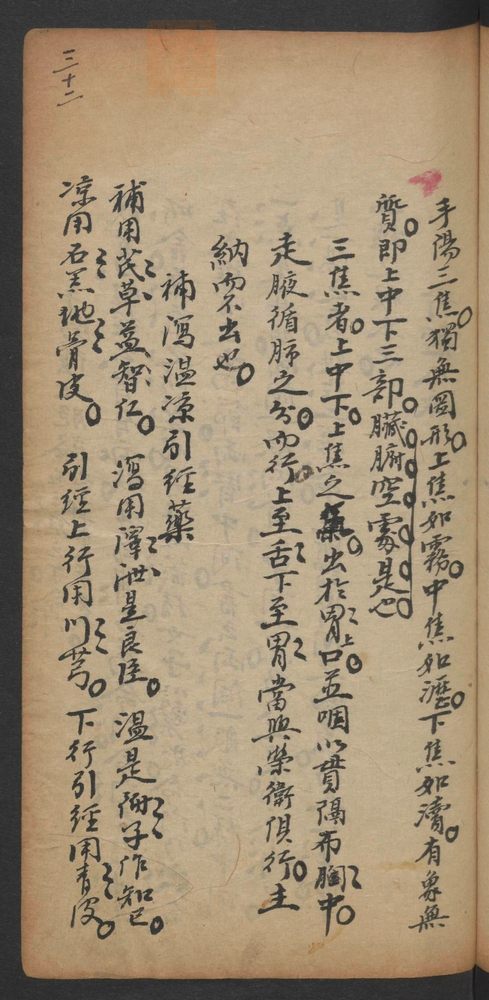 手陽三焦獨無圖形上焦如霧中焦如瀝下焦如瀆有象無
質即上中下三部臟腑空處是也
三焦者上中下上焦之氣出於胃上口並咽以貫隔布胸中
走腋循肺之分而行上至舌下至胃當與榮衛俱行主
納而不出也
補瀉溫涼引經藥
補用芪草益智仁瀉用澤泄是良臣溫是附子作知己
凉用石羔地骨皮引經上行用川芎下行引經用青皮
三十二